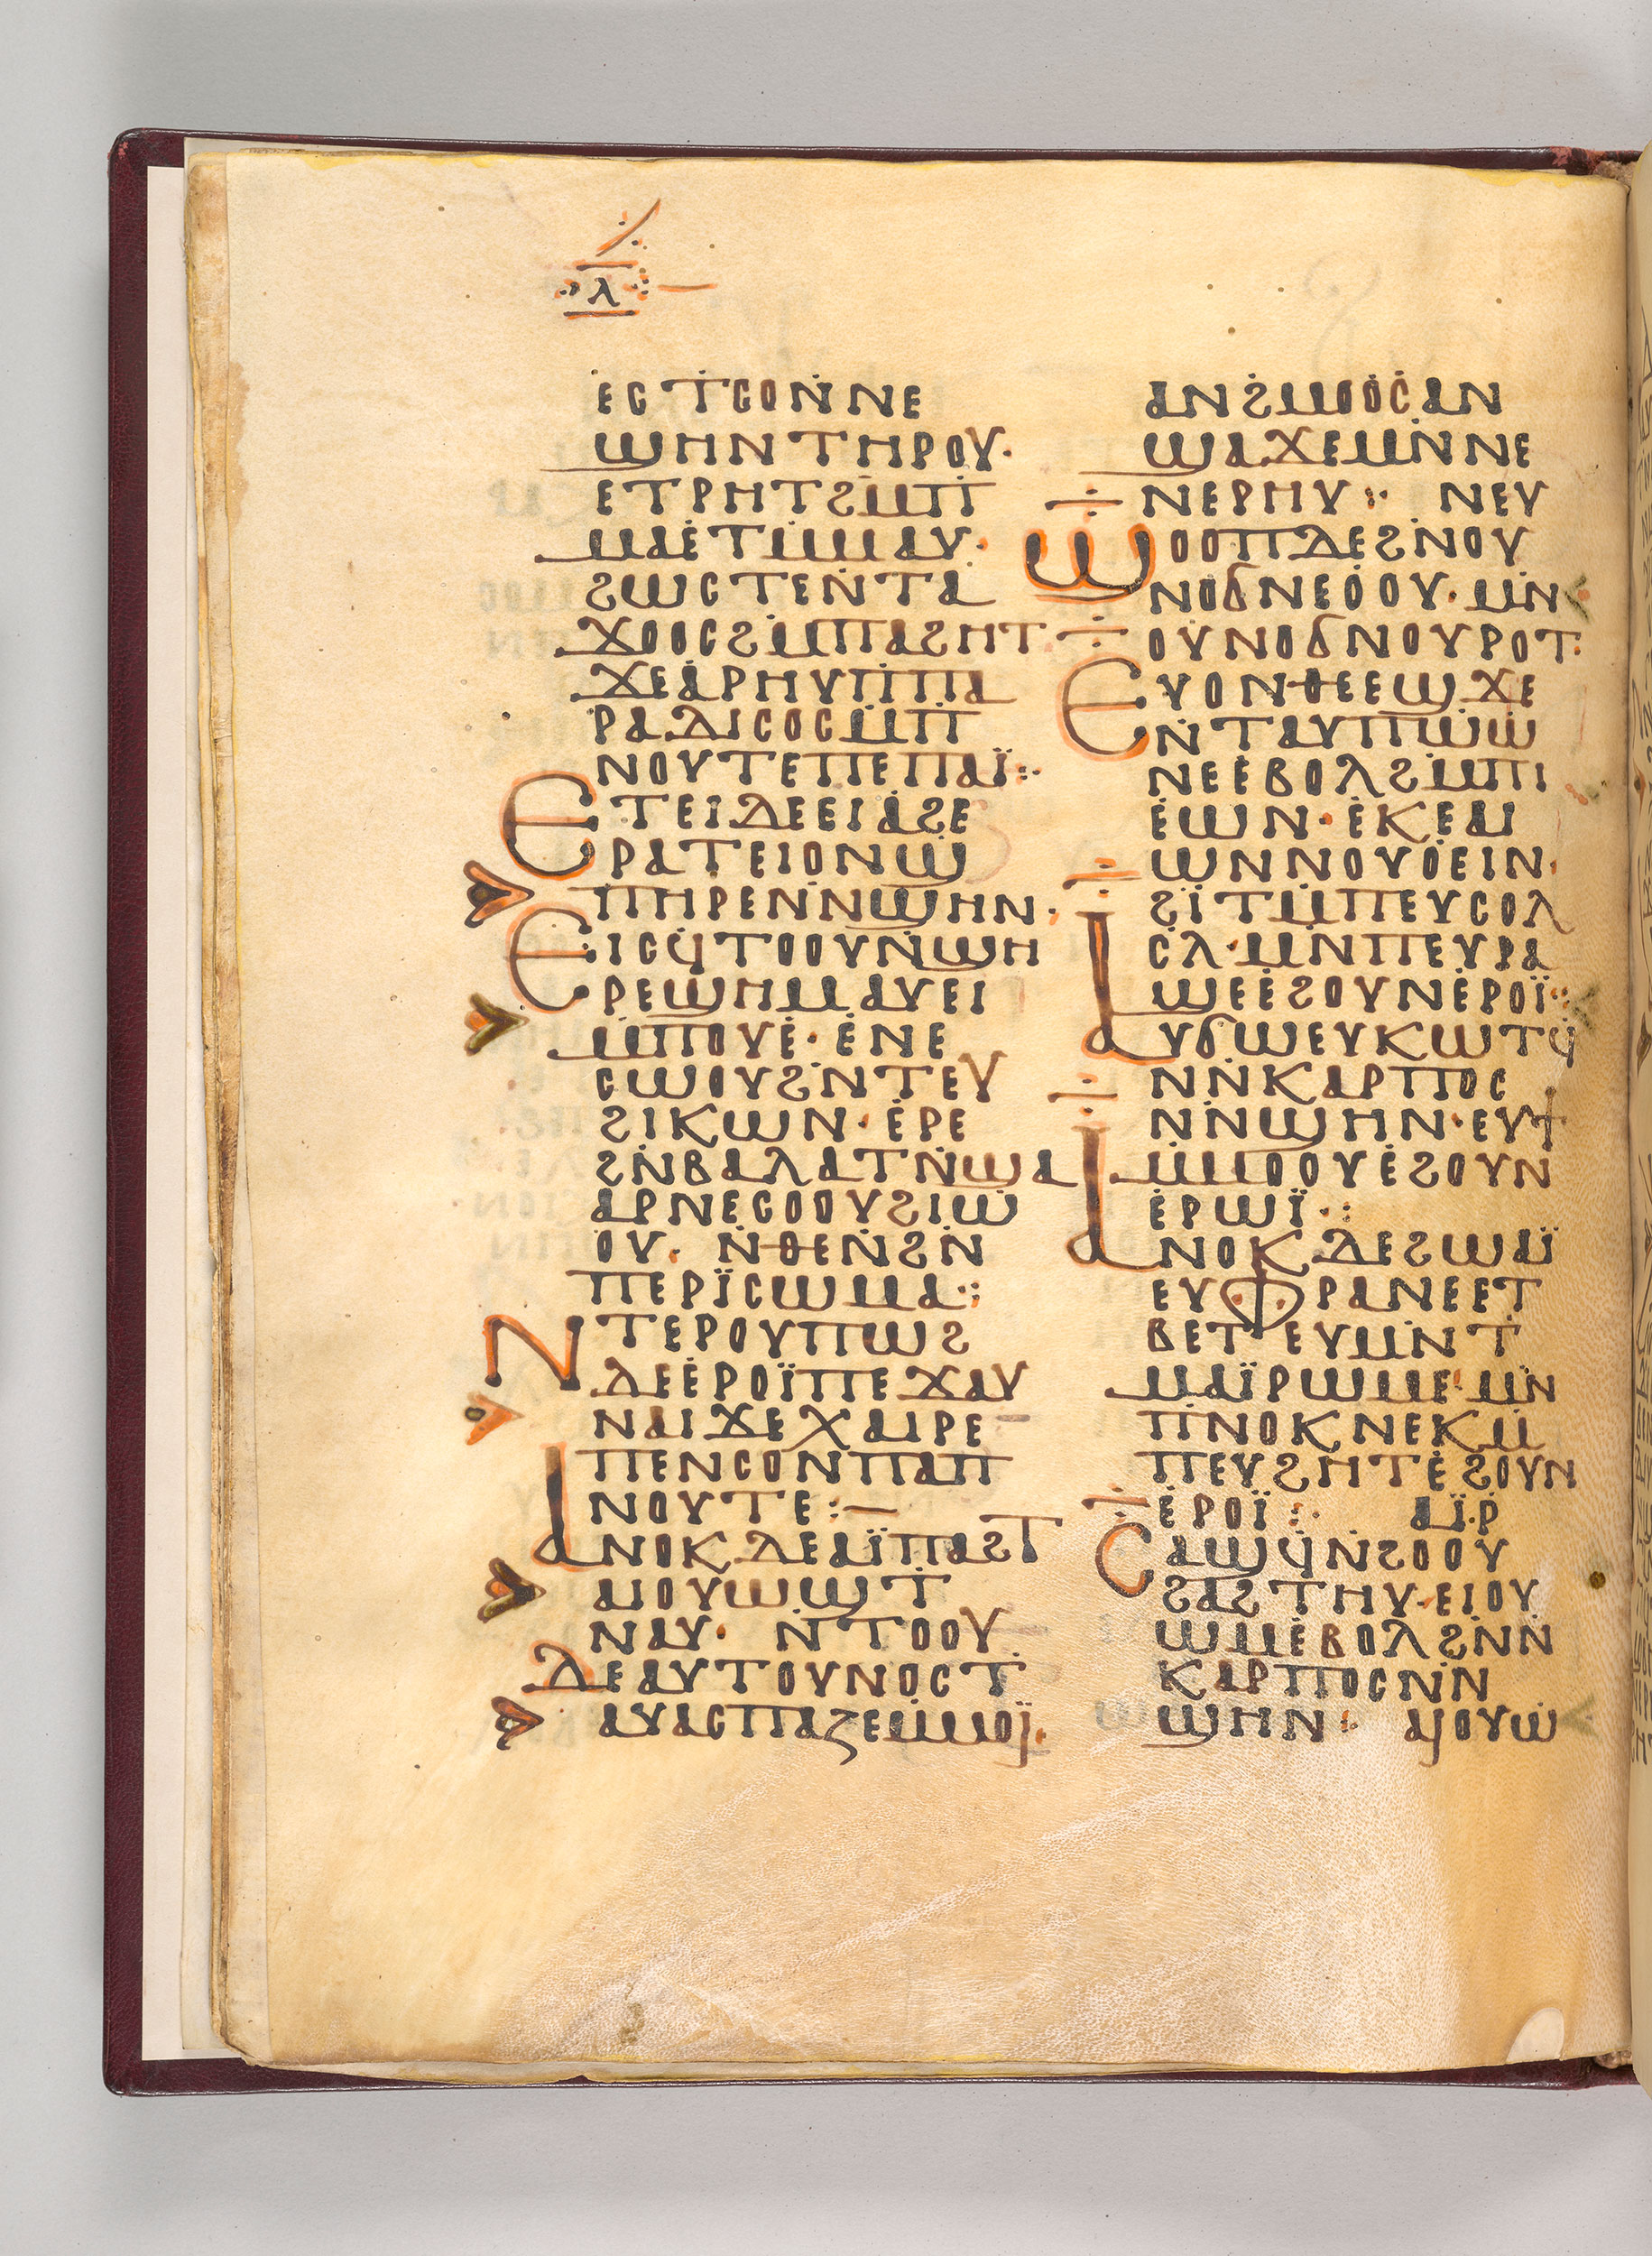 ⲗ
ⲉⲥⲧⲥⲟⲛⲛⲉ
ϣⲏⲛⲧⲏⲣⲟⲩ·
ⲉⲧⲣⲏⲧϩⲙⲡ
ⲙⲁⲉⲧⲙⲙⲁⲩ·
ϩⲱⲥⲧⲉⲛⲧⲁ
ϫⲟⲟⲥϩⲙⲡⲁϩⲏⲧ
ϫⲉⲁⲣⲏⲩⲡⲡⲁ
ⲣⲁⲇⲓⲥⲟⲥⲙⲡ
ⲛⲟⲩⲧⲉⲡⲉⲡⲁⲓ̈:·
ⲉⲧⲉⲓⲇⲉⲉⲓⲁϩⲉ
ⲣⲁⲧⲉⲓⲟⲛϣ
ⲡⲏⲣⲉⲛⲛϣⲏⲛ·
ⲉⲓⲥϥⲧⲟⲟⲩⲛϣⲏ
ⲣⲉϣⲏⲙⲁⲩⲉⲓ
ⲙⲡⲟⲩⲉ·ⲉⲛⲉ
ⲥⲱⲟⲩϩⲛⲧⲉⲩ
ϩⲓⲕⲱⲛ·ⲉⲣⲉ
ϩⲛⲃⲁⲗⲁⲧⲛϣⲁ
ⲁⲣⲛⲉⲥⲟⲟⲩϩⲓⲱ
ⲟⲩ· ⲛⲑⲉⲛϩⲛ
ⲡⲉⲣⲓ̈ⲥⲱⲙⲁ·:
ⲛⲧⲉⲣⲟⲩⲡⲱϩ
ⲇⲉⲉⲣⲟⲓ̈ⲡⲉϫⲁⲩ
ⲛⲁⲓϫⲉⲭⲁⲓⲣⲉ
ⲡⲉⲛⲥⲟⲛⲡⲁⲡ
ⲛⲟⲩⲧⲉ:—
ⲁⲛⲟⲕⲇⲉⲁⲓ̈ⲡⲁϩⲧ
ⲁⲓⲟⲩⲱϣⲧ
ⲛⲁⲩ· ⲛⲧⲟⲟⲩ
ⲇⲉⲁⲩⲧⲟⲩⲛⲟⲥⲧ
ⲁⲩⲁⲥⲡⲁⲍⲉⲙⲙⲟⲓ̈·
ⲁⲛϩⲙⲟⲟⲥⲁⲛ
ϣⲁϫⲉⲙⲛⲛⲉ
ⲛⲉⲣⲏⲩ:· ⲛⲉⲩ
ϣⲟⲟⲡⲇⲉϩⲛⲟⲩ
ⲛⲟϭⲛⲉⲟⲟⲩ·ⲙⲛ
ⲟⲩⲛⲟϭⲛⲟⲩⲣⲟⲧ·
ⲉⲩⲟⲛⲑⲉⲉϣϫⲉ
ⲛⲧⲁⲩⲡⲱⲱ
ⲛⲉⲉⲃⲟⲗϩⲙⲡⲓ
ⲉⲱⲛ·ⲉⲕⲉⲁⲓ
ⲱⲛⲛⲟⲩⲟⲉⲓⲛ·
ϩⲓⲧⲙⲡⲉⲩⲥⲟⲗ
ⲥⲗ·ⲙⲛⲡⲉⲩⲣⲁ
ϣⲉⲉϩⲟⲩⲛⲉⲣⲟⲓ̈:·
ⲁⲩϭⲱⲉⲩⲕⲱⲧϥ
ⲛⲛⲕⲁⲣⲡⲟⲥ
ⲛⲛϣⲏⲛ·ⲉⲩϯ
ⲙⲙⲟⲟⲩⲉϩⲟⲩⲛ
ⲉⲣⲱⲓ̈·:
ⲁⲛⲟⲕⲇⲉϩⲱⲁⲓ̈
ⲉⲩⲫⲣⲁⲛⲉⲉⲧ
ⲃⲉⲧⲉⲩⲙⲛⲧ
ⲙⲁⲓ̈ⲣⲱⲙⲉ·ⲙⲛ
ⲡⲛⲟⲕⲛⲉⲕⲙ
ⲡⲉⲩϩⲏⲧⲉϩⲟⲩⲛ
ⲉⲣⲟⲓ̈:· ⲁⲓ̈ⲣ
ⲥⲁϣϥⲛϩⲟⲟⲩ
ϩⲁϩⲧⲏⲩ·ⲉⲓⲟⲩ
ⲱⲙⲉⲃⲟⲗϩⲛⲛ
ⲕⲁⲣⲡⲟⲥⲛⲛ
ϣⲏⲛ: ⲁⲓⲟⲩⲱ